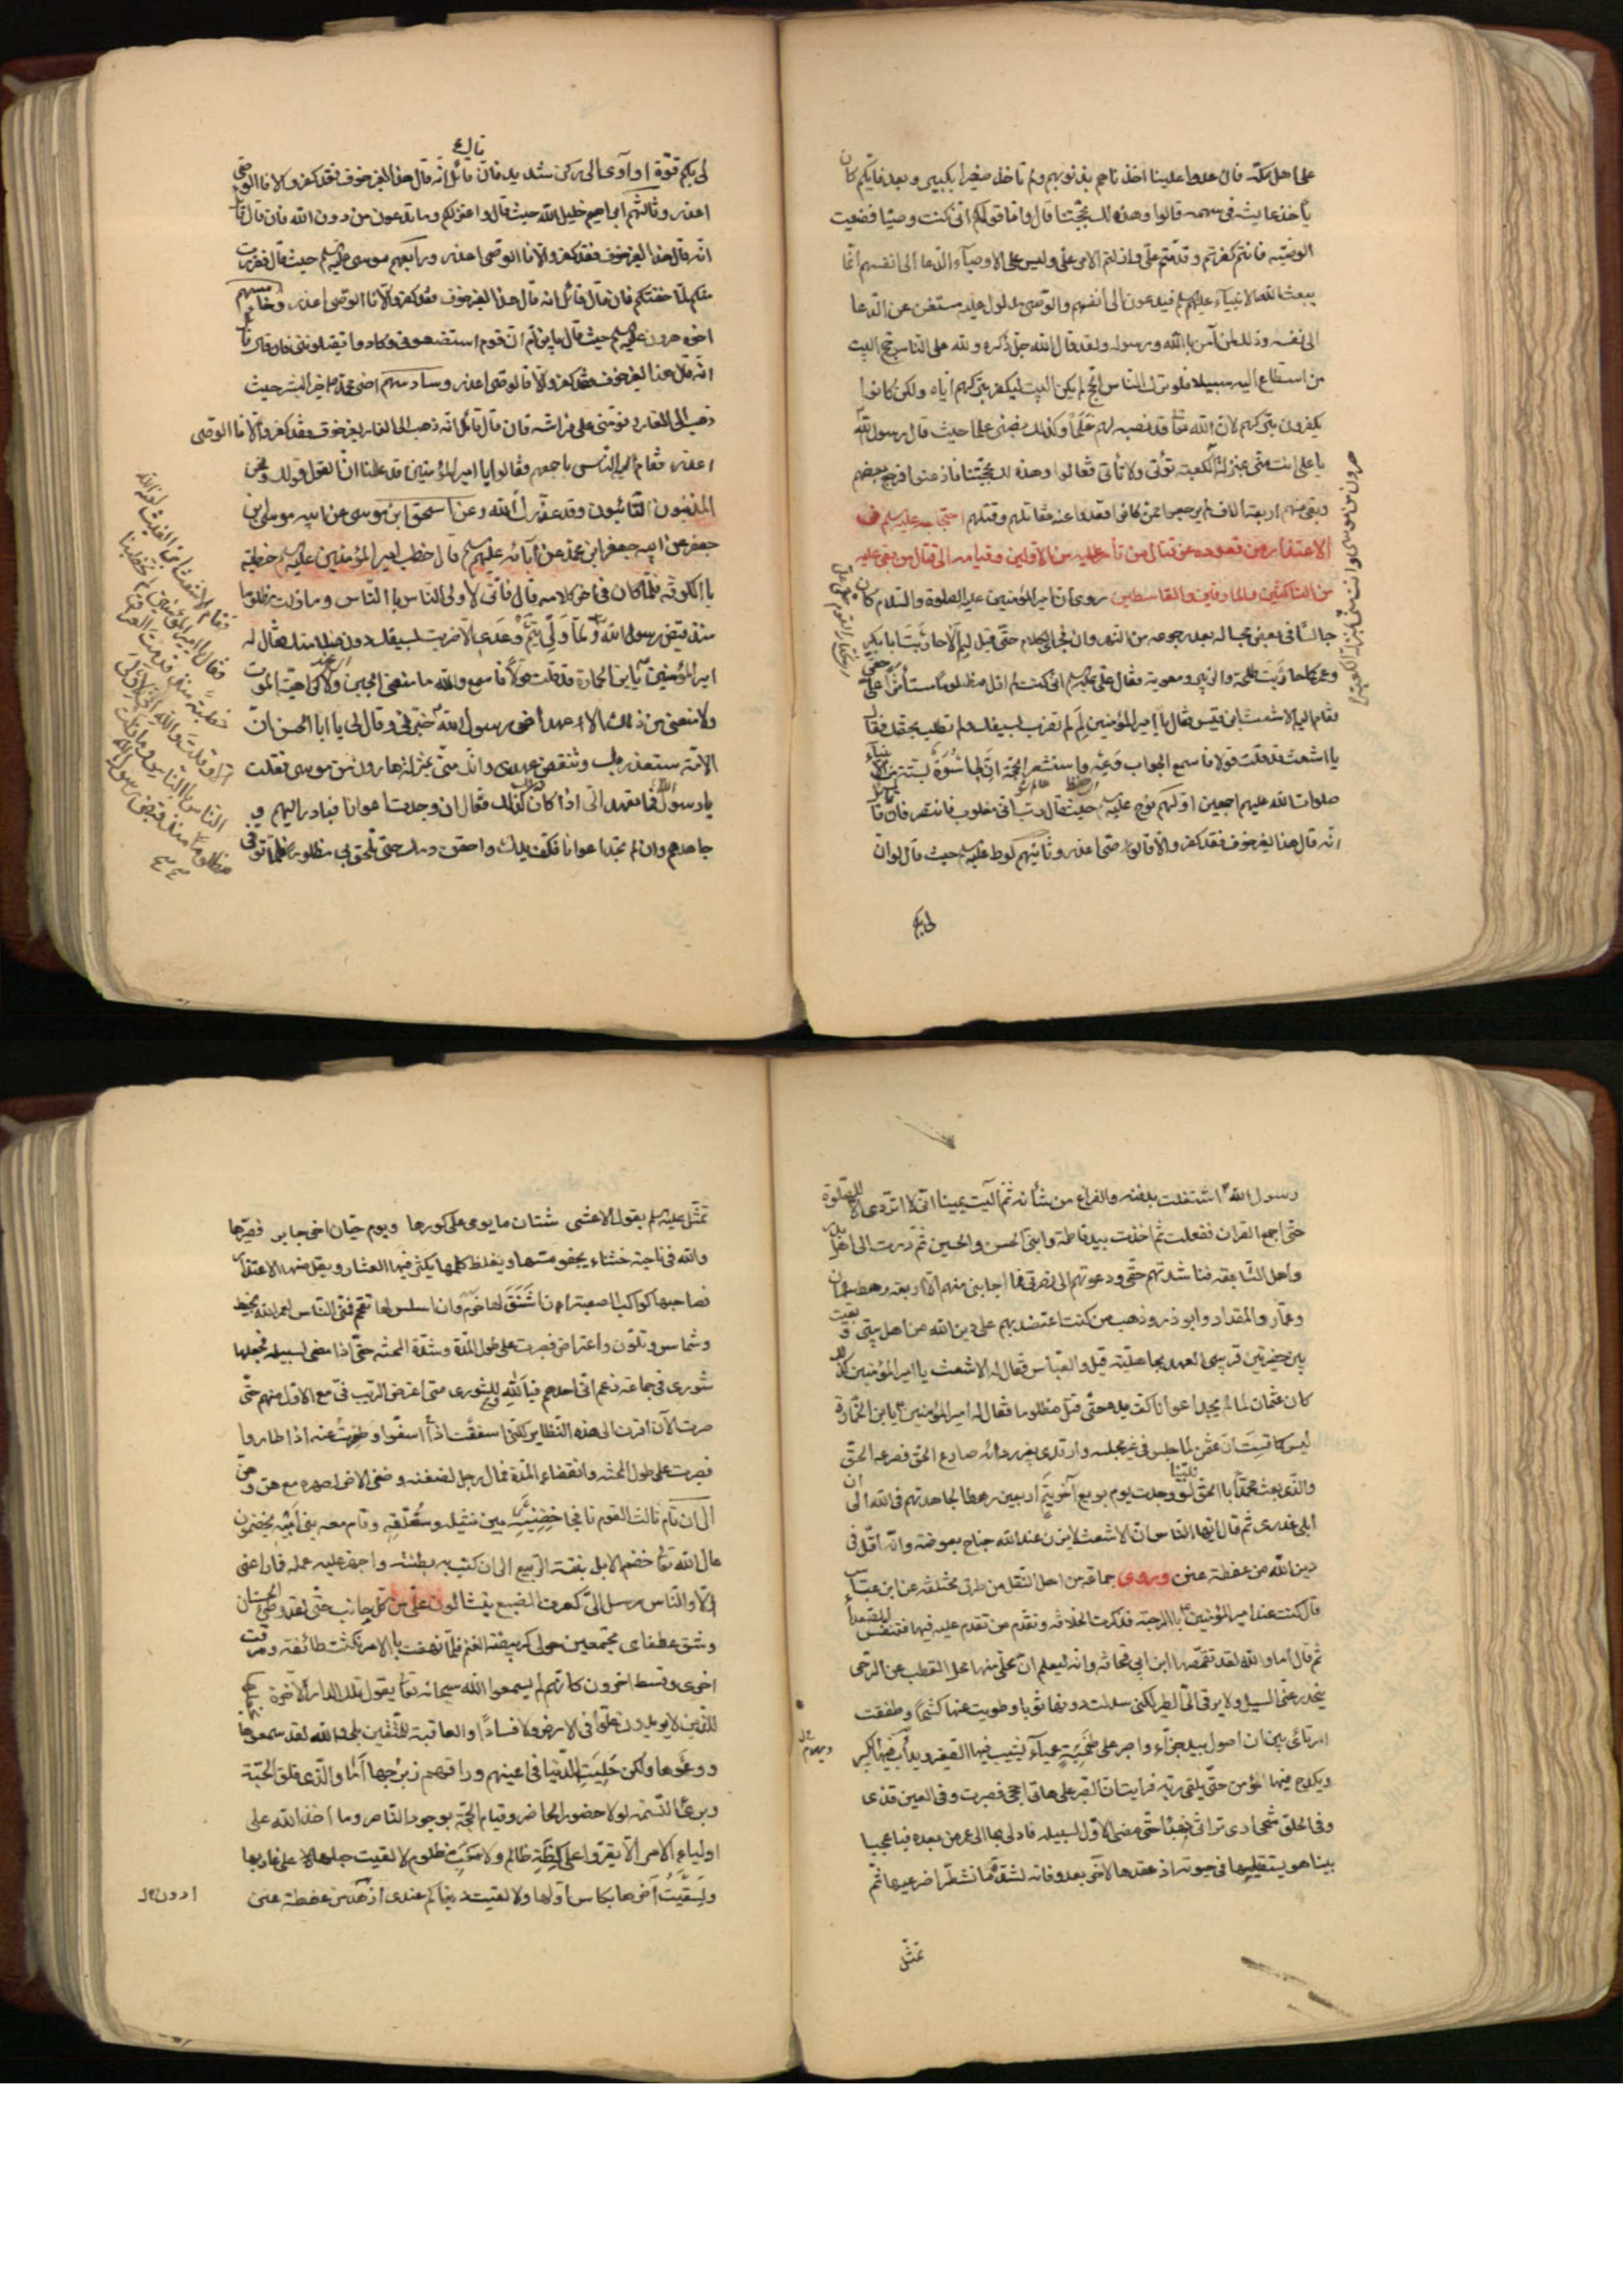 على اهل مكة فان عدوا علينا اخذناهم بذنوبهم ولم ناخذ صغيرا بكبير وبعد فايكم كان
ياخذ عايشة في سهمه قالوا وهذه لك بحجتنا قال واما قولكم اني كنت وصيا فضيعت
الوصية فانتم كفرتم وقدمتم علي وازلتم الامر عني وليس على الاوصياء الدعا الى انفسهم انما
يبعث الله الانبياء عليهم السلم فيدعون الى انفسهم والوصي مدلول عليه مستغن عن الدعا
الى نفسه وذلك لمن آمن بالله ورسوله ولقد قال الله جل ذكره ولله على الناس حج البيت
من استطاع اليه سبيلا فلو ترك الناس الحج لم يكن البيت ليكفر بتركهم اياه ولكن كانوا
يكفرون بتركهم لان الله تعا قد نصبه لهم علما وكذلك نصبني علما حيث قال رسول الله
يا علي انت مني بمنزلة الكعبة تؤتى ولا تأتي فقالوا وهذه لك بحجتنا فاذعنوا فرجع بعضهم
وبقي منهم اربعة الاف لم يرجعوا ممن كانوا قعدوا عنه فقاتلهم وقتلهم احتجاجه عليه السلم في
الاعتذار من قعوده عن قتال من تأمر عليه من الاولين وقيامه الى قتال من بغى عليه
من الناكثين والمارقين والقاسطين روي ان امير المؤمنين عليه الصلوة والسلام كان
جالسا في بعض مجالسه بعد رجوعه من النهروان فجرى الكلام حتى قيل لم لا حاربت ابا بكر
وعمر كما حاربت طلحة والزبير ومعوية فقال علي عليه السلم اني كنت لم ازل مظلوما مستأثرا على حقي
فقام اليه الاشعث ابن قيس فقال يا امير المؤمنين لم لم تضرب بسيفك ولم تطلب بحقك فقال
يا اشعث قد قلت قولا فاسمع الجواب وعه واستشعر الحجة ان لي اسوة بستة من الانبياء
صلوات الله عليهم اجمعين اولهم نوح عليه السلم حيث قال رب اني مغلوب فانتصر فان قال
انه قال هذا لغير خوف فقد كفر والا فالوصي اعذر وثانيهم لوط عليه السلم حيث قال لو ان
لي بكم
لي بكم قوة او آوي الى ركن شديد فان قائل انه قال هذا لغير خوف فقد كفر والا فالوصي
اعذر وثالثهم ابراهيم خليل الله حيث قال واعتزلكم وما تدعون من دون الله فان قال قائل
انه قال هذا لغير خوف فقد كفر والا فالوصي اعذر ورابعهم موسى عليه السلم حيث قال ففررت
منكم لما خفتكم فان قال قائل انه قال هذا لغير خوف فقد كفر والا فالوصي اعذر وخامسهم
اخوه هرون عليه السلم حيث قال يا ابن ام ان القوم استضعفوني وكادوا يقتلونني فان قال قائل
انه قال هذا لغير خوف فقد كفر والا فالوصي اعذر وسادسهم اخي محمد خير البشر حيث
ذهب الى الغار ونومني على فراشه فان قال قائل انه ذهب الى الغار لغير خوف فقد كفر والا فالوصي
اعذر فقام اليه الناس باجمعهم فقالوا يا امير المؤمنين قد علمنا ان القول قولك ونحن
المذنبون التائبون وقد عذرك الله وعن اسحق ابن موسى عن ابيه موسى ابن
جعفر عن ابيه جعفر ابن محمد عن آبائه عليهم السلم قال خطب امير المؤمنين عليه السلم خطبة
بالكوفة فلما كان في آخر كلامه قال اني لاولى الناس بالناس وما زلت مظلوما
منذ قبض رسول الله ولما ولي تيم وعدي الا ضربت بسيفك دون ظلامتك فقال له
امير المؤمنين يا ابن الخمارة قد قلت قولا فاسمع والله ما منعني الجبن ولا كراهية الموت
ولا منعني من ذلك الا عهد اخي رسول الله خبرني وقال لي يا ابا الحسن ان
الامة ستغدر بك وتنقض عهدي وانك مني بمنزلة هارون من موسى فقلت
يا رسول الله فما تعهد الي اذا كان كذلك فقال ان وجدت اعوانا فبادر اليهم و
جاهدهم وان لم تجد اعوانا فكف يدك واحقن دمك حتى تلحق بي مظلوما فلما توفي
رسول الله اشتغلت بدفنه والفراغ من شأنه ثم آليت يمينا اني لا ارتدي الا للصلوة
حتى اجمع القران ففعلت ثم اخذت بيد فاطمة وابني الحسن والحسين ثم درت الى اهل بدر
واهل السابقة فناشدتهم حقي ودعوتهم الى نصرتي فما اجابني منهم الا اربعة رهط سلمان
وعمار والمقداد وابو ذر وذهب من كنت اعتضد بهم على دين الله من اهل بيتي وبقيت
بين حفيرتين قريبي العهد بجاهلية عقيل والعباس فقال له الاشعث يا امير المؤمنين كذلك
كان عثمان لما لم يجد اعوانا كف يده حتى قتل مظلوما فقال له امير المؤمنين يا ابن الخمارة
ليس كما قست ان عثمن لما جلس في غير مجلسه وارتدى بغير ردائه صارع الحق فصرعه الحق
والذي بعث محمدا بالحق لو وجدت يوم بويع اخو تيم اربعين رهطا لجاهدتهم في الله الى ان
ابلي عذري ثم قال ايها الناس ان الاشعث لا يزن عند الله جناح بعوضة وانه اقل في
دين الله من عفطة عنز وروى جماعة من اهل النقل من طرق مختلفة عن ابن عباس
قال كنت عند امير المؤمنين بالرحبة فذكرت الخلافة وتقدم من تقدم عليه فيها فتنفس الصعداء
ثم قال اما والله لقد تقمصها ابن ابي قحافة وانه ليعلم ان محلي منها محل القطب من الرحى
ينحدر عني السيل ولا يرقى الي الطير لكني سدلت دونها ثوبا وطويت عنها كشحا وطفقت
ارتأي بين ان اصول بيد جذاء او اصبر على طخية عمياء يشيب فيها الصغير ويدأب فيها الكبير
ويكدح فيها مؤمن حتى يلقى ربه فرايت ان الصبر على هاتا احجى فصبرت وفي العين قذى
وفي الحلق شجى ارى تراثي نهبا حتى مضى الاول لسبيله فادلى بها الى عمر من بعده فيا عجبا
بينا هو يستقيلها في حيوته اذ عقدها لآخر بعد وفاته لشد ما تشطرا ضرعيها ثم
تمثل
تمثل عليه السلم بقول الاعشى شتان ما يومي على كورها ويوم حيان اخي جابر فصيرها
والله في ناحية خشناء يجفو مسها ويغلظ كلمها يكثر فيها العثار ويقل منها الاعتذار
فصاحبها كراكب الصعبة ان اشنق لها خرم وان اسلس لها تقحم فمني الناس لعمر الله بخبط
وشماس وتلون واعتراض فصبرت على طول المدة وشدة المحنة حتى اذا مضى لسبيله فجعلها
شورى في جماعة زعم اني احدهم فيا لله وللشورى متى اعترض الريب في مع الاول منهم حتى
صرت الآن اقرن الى هذه النظاير لكني اسففت اذ اسفوا وطرت اذا طاروا
فصبرت على طول المحنة وانقضاء المدة فمال رجل لضغنه وصغى الاخر لصهره مع هن وهن
الى ان قام ثالث القوم نافجا حضنيه بين نثيله ومعتلفه وقام معه بنو ابيه يخضمون
مال الله تعا خضم الابل نبتة الربيع الى ان كبت به بطنته واجهز عليه عمله فما راعني
الا والناس رسل الي كعرف الضبع ينثالون علي من كل جانب حتى لقد وطئ الحسنان
وشق عطفاي مجتمعين حولي كربيضة الغنم فلما نهضت بالامر نكثت طائفة ومرقت
اخرى وقسط اخرون كانهم لم يسمعوا الله سبحانه تعا يقول تلك الدار الآخرة نجعلها
للذين لا يريدون علوا في الارض ولا فسادا والعاقبة للمتقين بلى والله لقد سمعوها
ووعوها ولكن حليت الدنيا في اعينهم وراقهم زبرجها اما والذي فلق الحبة
وبرئ النسمة لولا حضور الحاضر وقيام الحجة بوجود الناصر وما اخذ الله على
اولياء الامر الا يقروا على كظة ظالم ولا سغب مظلوم لالقيت حبلها على غاربها
ولسقيت آخرها بكاس اولها ولالفيت دنياكم عندي ازهد من عفطة عنز